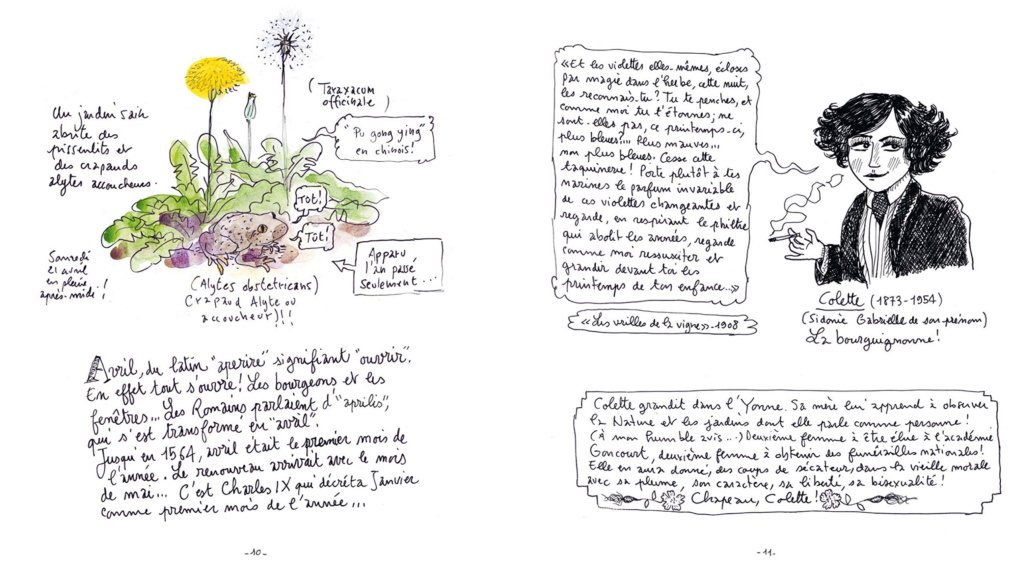 Un jardin sain
abrite des
pissenlits et
des crapauds
alytes accoucheurs.
(Taraxacum
officinale)
"Pu gong ying"
en chinois!
Tôt!
Tôt!
Apparu
l'an passé
seulement...
Samedi
21 avril
en pleine
après-midi!
(Alytes obstetricans)
Crapaud Alyte ou
accoucheur)!!
Avril, du latin "aperire" signifiant "ouvrir".
En effet tout s'ouvre! Les bourgeons et les
fenêtres... Les Romains parlaient d'"aprilis",
qui s'est transformé en "avril".
Jusqu'en 1564, avril était le premier mois de
l'année. Le renouveau arrivait avec le mois
de mai... C'est Charles IX qui décréta Janvier
comme premier mois de l'année...
-10-
«Et les violettes elles-mêmes, écloses
par magie dans l'herbe, cette nuit,
les reconnais-tu? Tu te penches, et
comme moi tu t'étonnes; ne
sont-elles pas, ce printemps-ci,
plus bleues?... Plus mauves...
non plus bleues. Cesse cette
taquinerie! Porte plutôt à tes
narines le parfum invariable
de ces violettes changeantes et
regarde, en respirant le philtre
qui abolit les années, regarde
comme moi ressusciter et
grandir devant toi les
printemps de ton enfance..»
«Les vrilles de la vigne»-1908
Colette (1873-1954)
(Sidonie Gabrielle de son prénom)
La bourguignonne!
Colette grandit dans l'Yonne. Sa mère lui apprend à observer
la Nature et les jardins dont elle parle comme personne!
(À mon humble avis...) Deuxième femme à être élue à l'académie
Goncourt, deuxième femme à obtenir des funérailles nationales!
Elle en aura donné, des coups de sécateur, dans la vieille morale
avec sa plume, son caractère, sa liberté, sa bisexualité!
Chapeau, Colette!
-11-